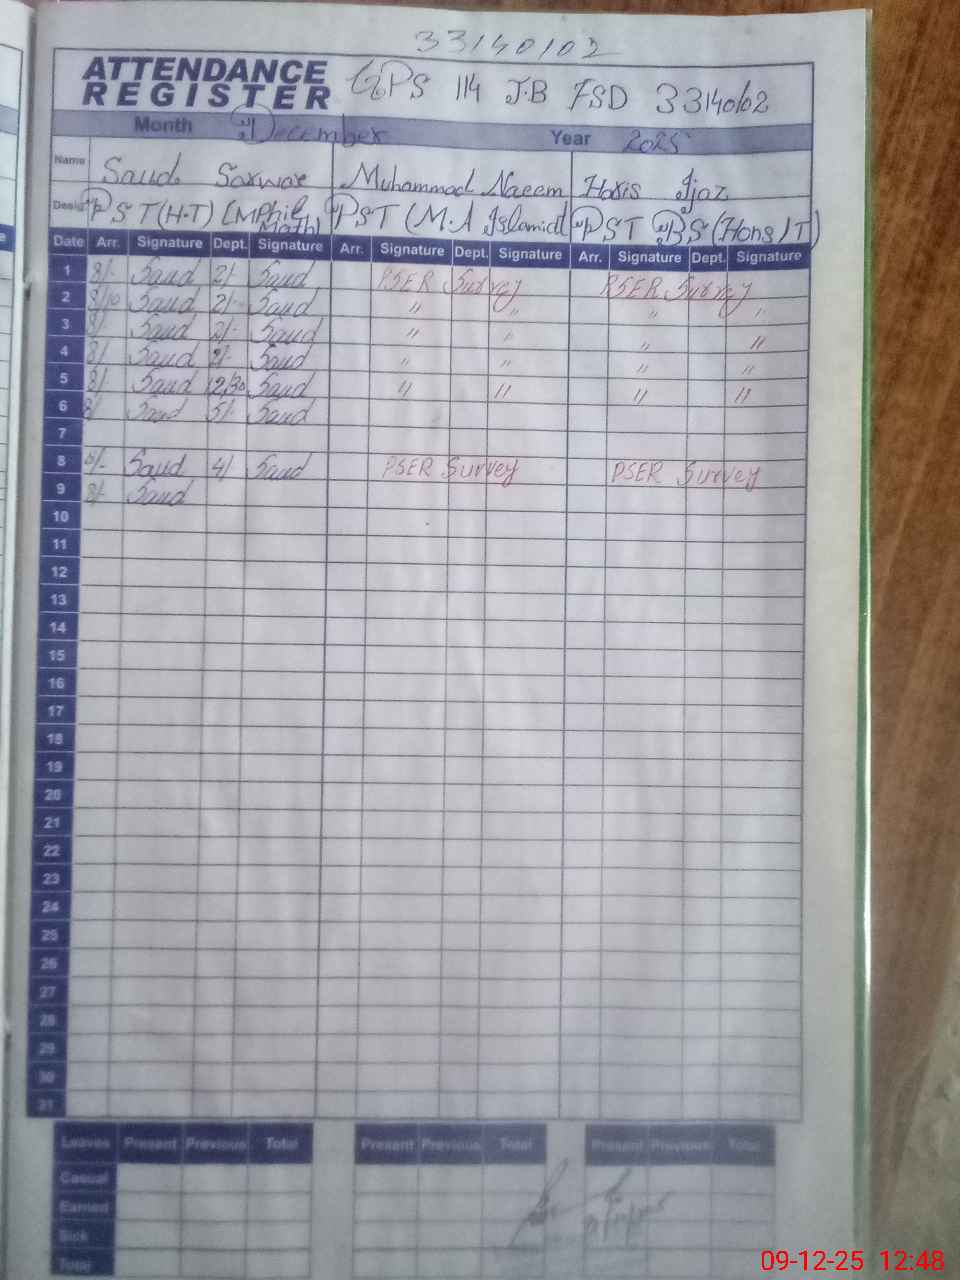 33140102
ATTENDANCE REGISTER GPS 114 J.B FSD 33140102
Month December Year 2025
Name Saud Sarwar Muhammad Naeem Haris Ijaz
PST (H.T) (MPhil Math) PST (M.A Islamiat) PST BS (Hons IT)
Date Arr. Signature Dept. Signature Arr. Signature Dept. Signature Arr. Signature Dept. Signature
1 8/- Saud 2/- Saud PSER Survey PSER Survey
2 8/10 Saud 2/- Saud " " " "
3 8/- Saud 2/- Saud " " " "
4 8/- Saud 2/- Saud " " " "
5 8/- Saud 12/30 Saud " " " "
6 8/- Saud 5/- Saud
7
8 Saud 4/ Saud PSER Survey PSER Survey
9 8/- Saud
10
11
12
13
14
15
16
17
18
19
20
21
22
23
24
25
26
27
28
29
30
31
Leaves Present Previous Total Present Previous Total Present Previous Total
Casual
Earned
Sick
Total
09-12-25 12:48